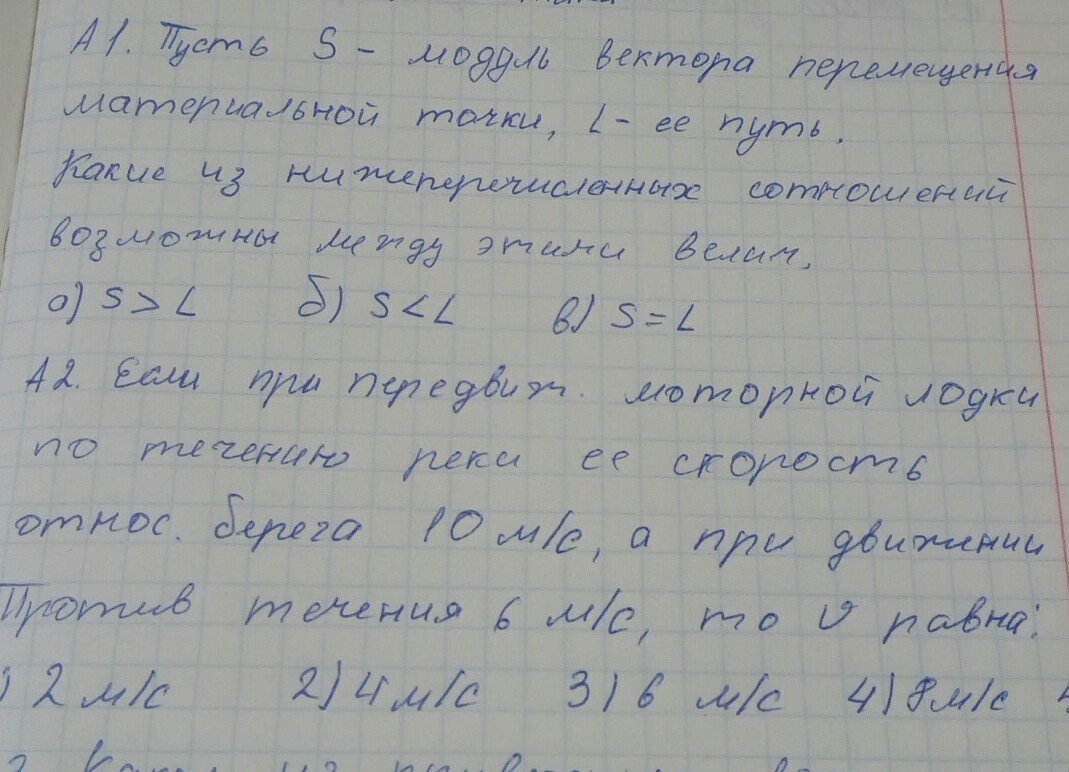 А1. Пусть S - модуль вектора перемещения
материальной точки, L - ее путь.
Какие из нижеперечисленных сотношений
возможны между этими велич.
а) S > L б) S < L в) S = L
А2. Если при передвиж. моторной лодки
по течению реки ее скорость
относ. берега 10 м/с, а при движении
Против течения 6 м/с, то υ равна:
) 2 м/с 2) 4 м/с 3) 6 м/с 4) 8 м/с